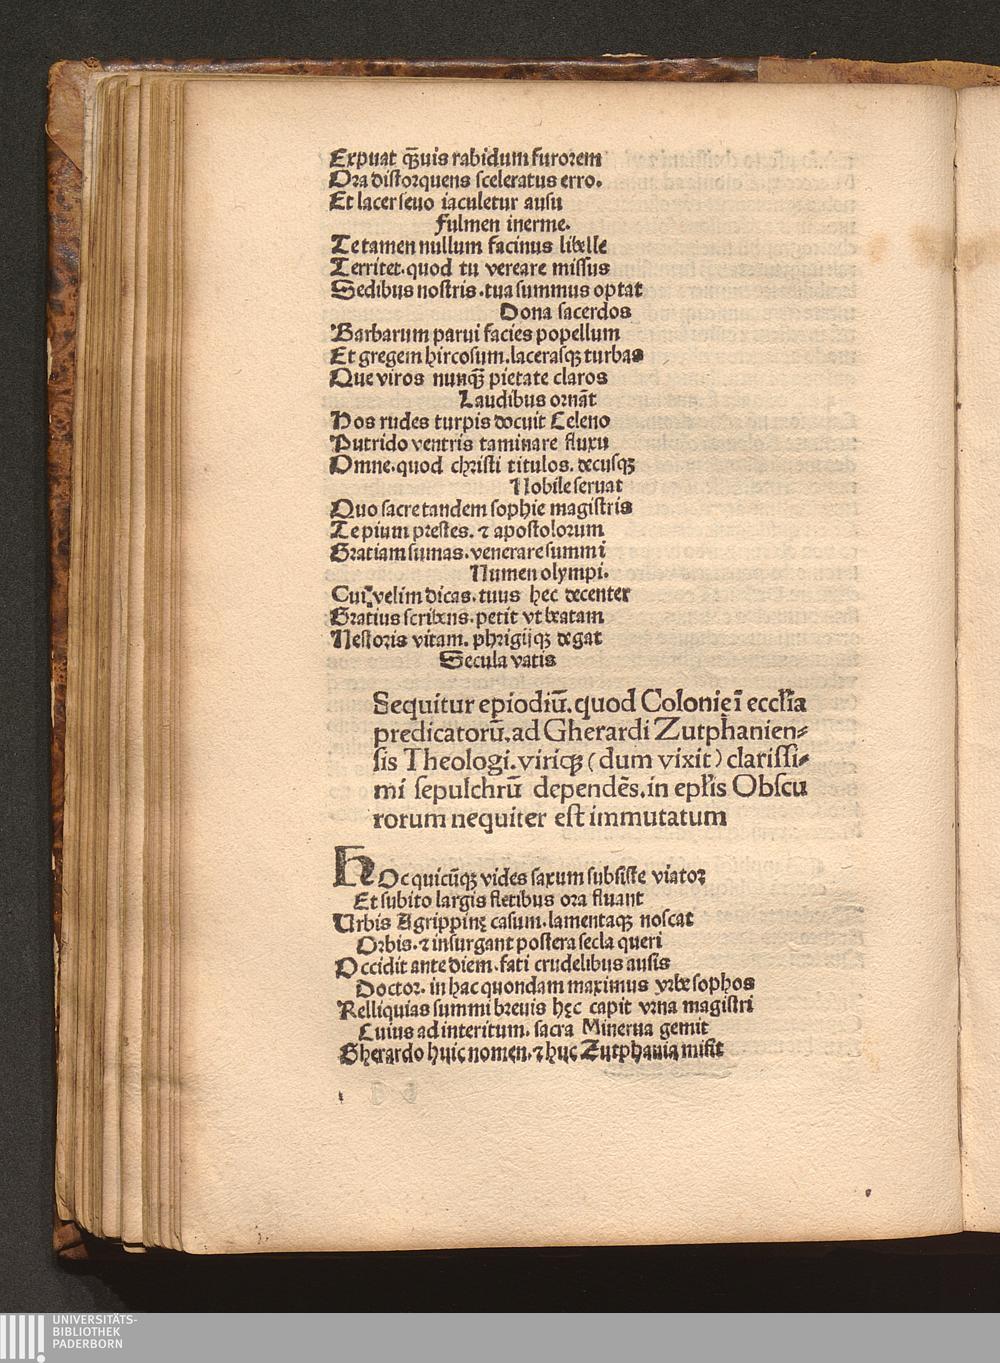 Expuat qꝫuis rabidum furorem
Ora distorquens sceleratus erro.
Et lacer seuo iaculetur ausu
Fulmen inerme.
Te tamen nullum facinus libelle
Territet. quod tu vereare missus
Sedibus nostris. tua summus optat
Dona sacerdos
Barbarum parui facies popellum
Et gregem hircosum. lacerasqꝫ turbas
Que viros nunqꝫ̄ pietate claros
Laudibus ornāt
Hos rudes turpis docuit Celeno
Putrido ventris taminare fluxu
Omne. quod christi titulos. decusqꝫ
Nobile seruat
Quo sacre tandem sophie magistris
Te pium prestes. ⁊ apostolorum
Gratiam sumas. venerare summi
Numen olympi.
Cui velim dicas. tuus hec decenter
Gratius scribens. petit vt beatam
Nestoris vitam. phrigijqꝫ degat
Secula vatis
Sequitur epiodiū. quod Colonię ī eccl'ia
predicatorū. ad Gherardi Zutphanien⸗
sis Theologi. viriqꝫ (dum vixit) clarissi⸗
mi sepulchrū dependēs. in epl'is Obscu
rorum nequiter est immutatum
HOc quicūqꝫ vides saxum subsiste viator
Et subito largis fletibus ora fluant
Urbis Agrippinę casum. lamentaqꝫ noscat
Orbis. ⁊ insurgant postera secla queri
Occidit ante diem. fati crudelibus ausis
Doctor. in hac quondam maximus vrbe sophos
Relliquias summi breuis hęc capit vrna magistri
Cuius ad interitum. sacra Minerua gemit
Gherardo huic nomen. ⁊ huc Zutphania misit
UNIVERSITÄTS-
BIBLIOTHEK
PADERBORN